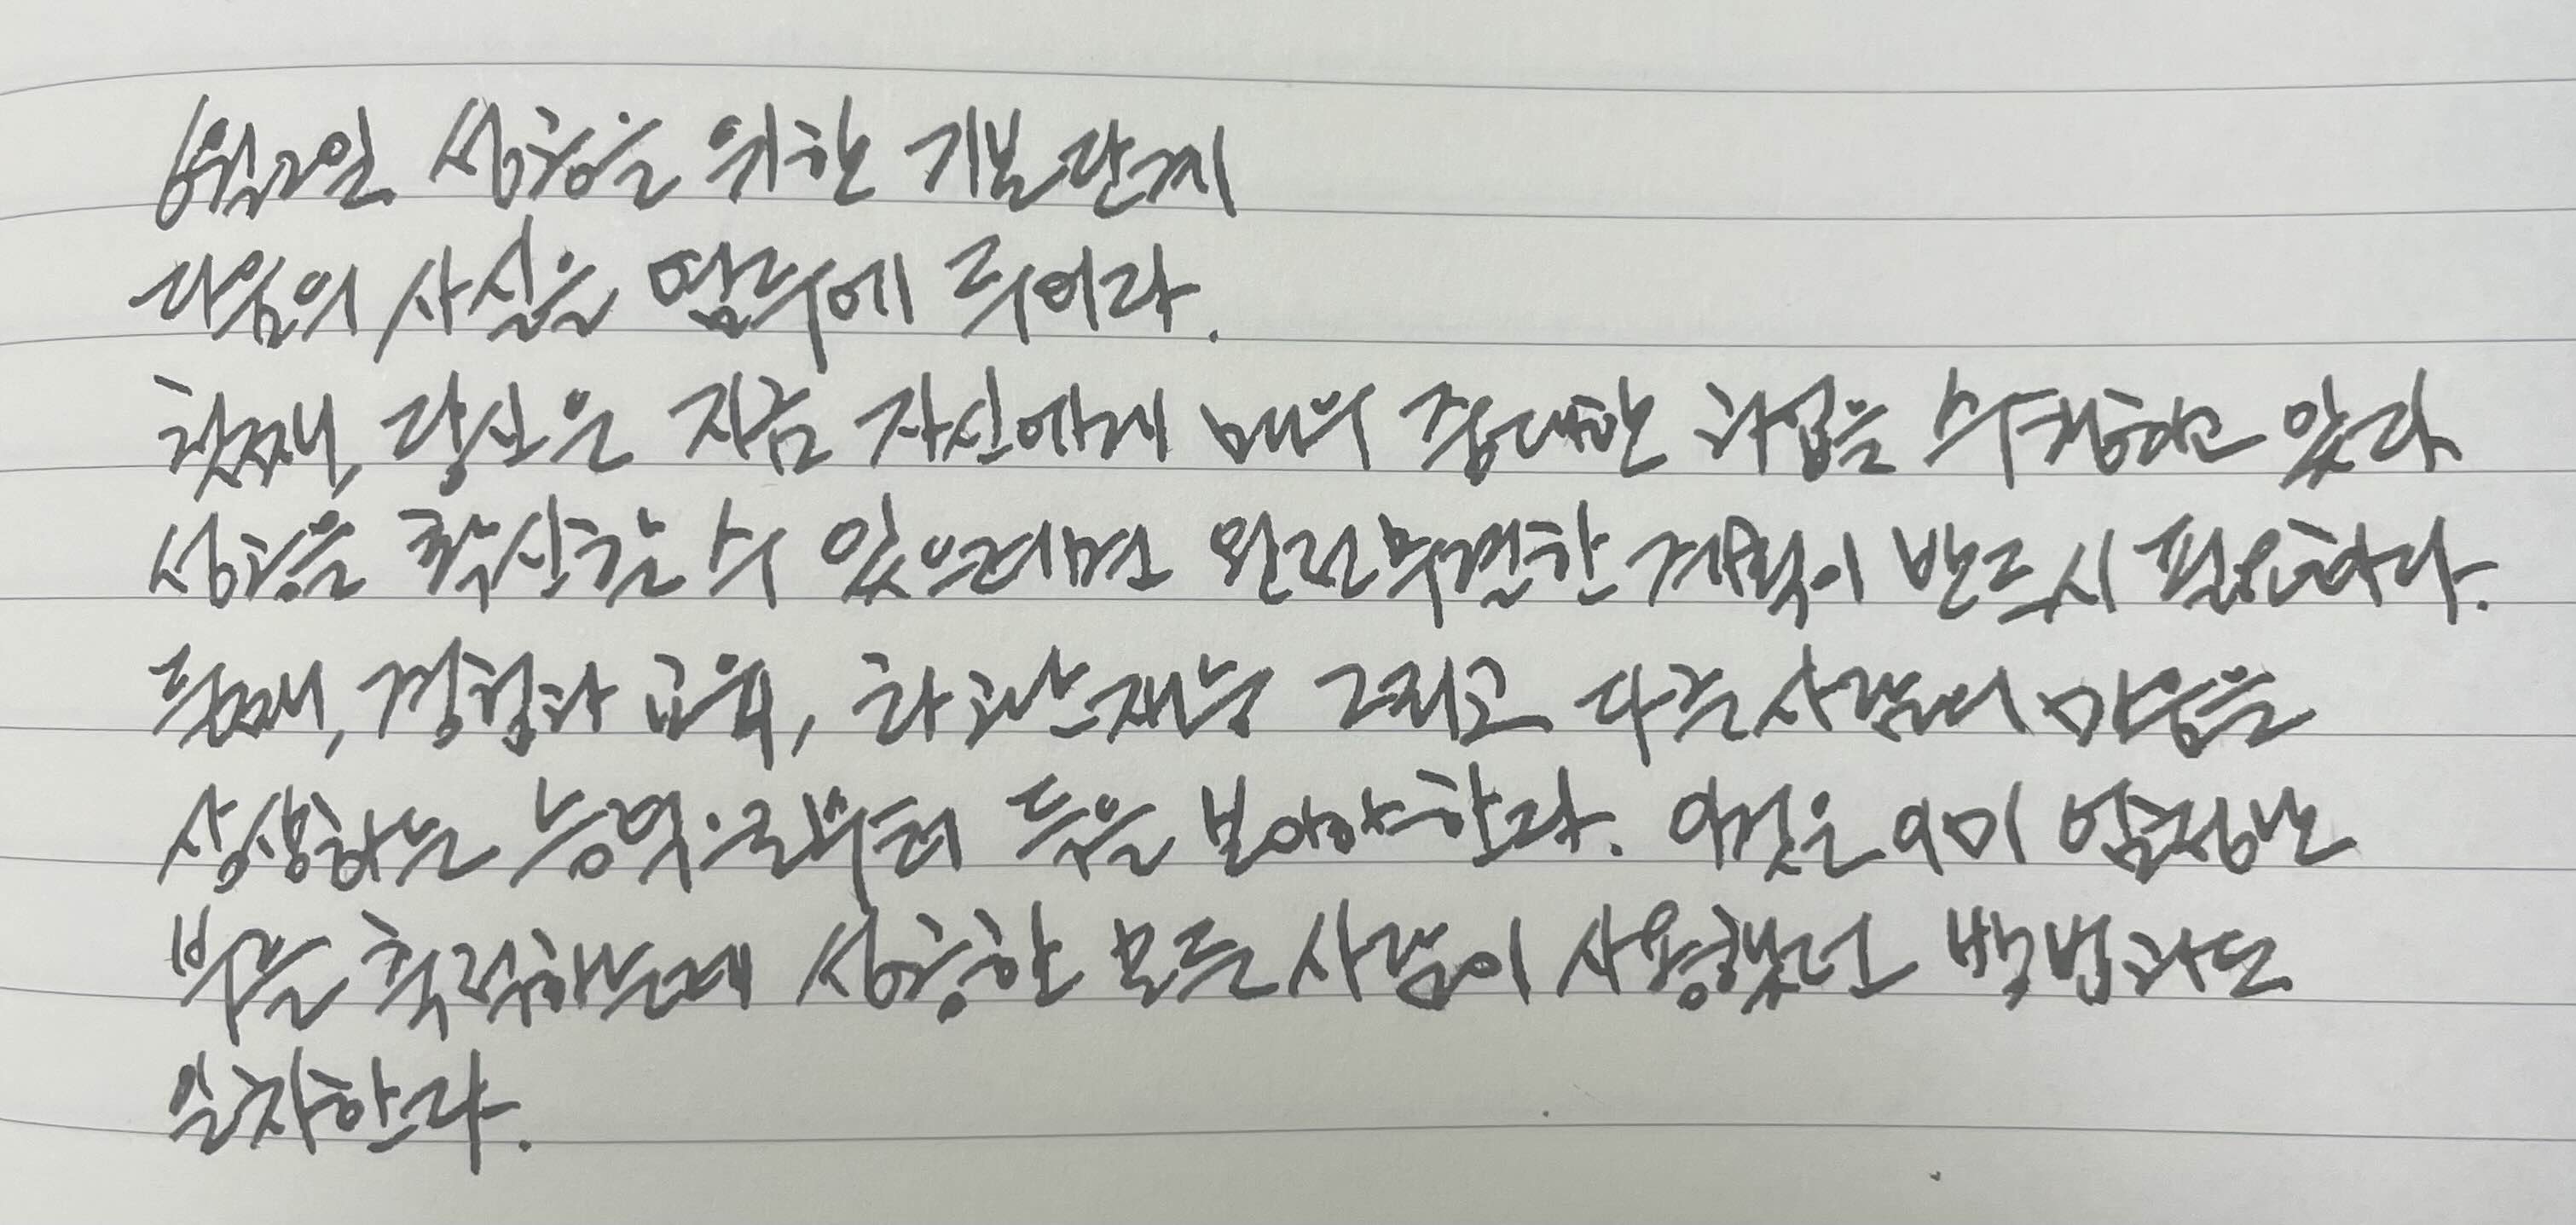 6월2일 성공을 위한 기본단계
다음의 사실을 염두에 두어라.
첫째, 당신은 지금 자신에게 매우 중대한 과업을 수행하고 있다
성공을 확신할 수 있으려면 완전무결한 계획이 반드시 필요하다.
둘째, 경험과 교육, 타고난 재능 그리고 다른사람의 마음을
상상하는 능력으로부터 득을 보아야한다. 이것은 이미 엄청난
부를 축적하는데 성공한 모든 사람이 사용했던 방법과도
일치한다.